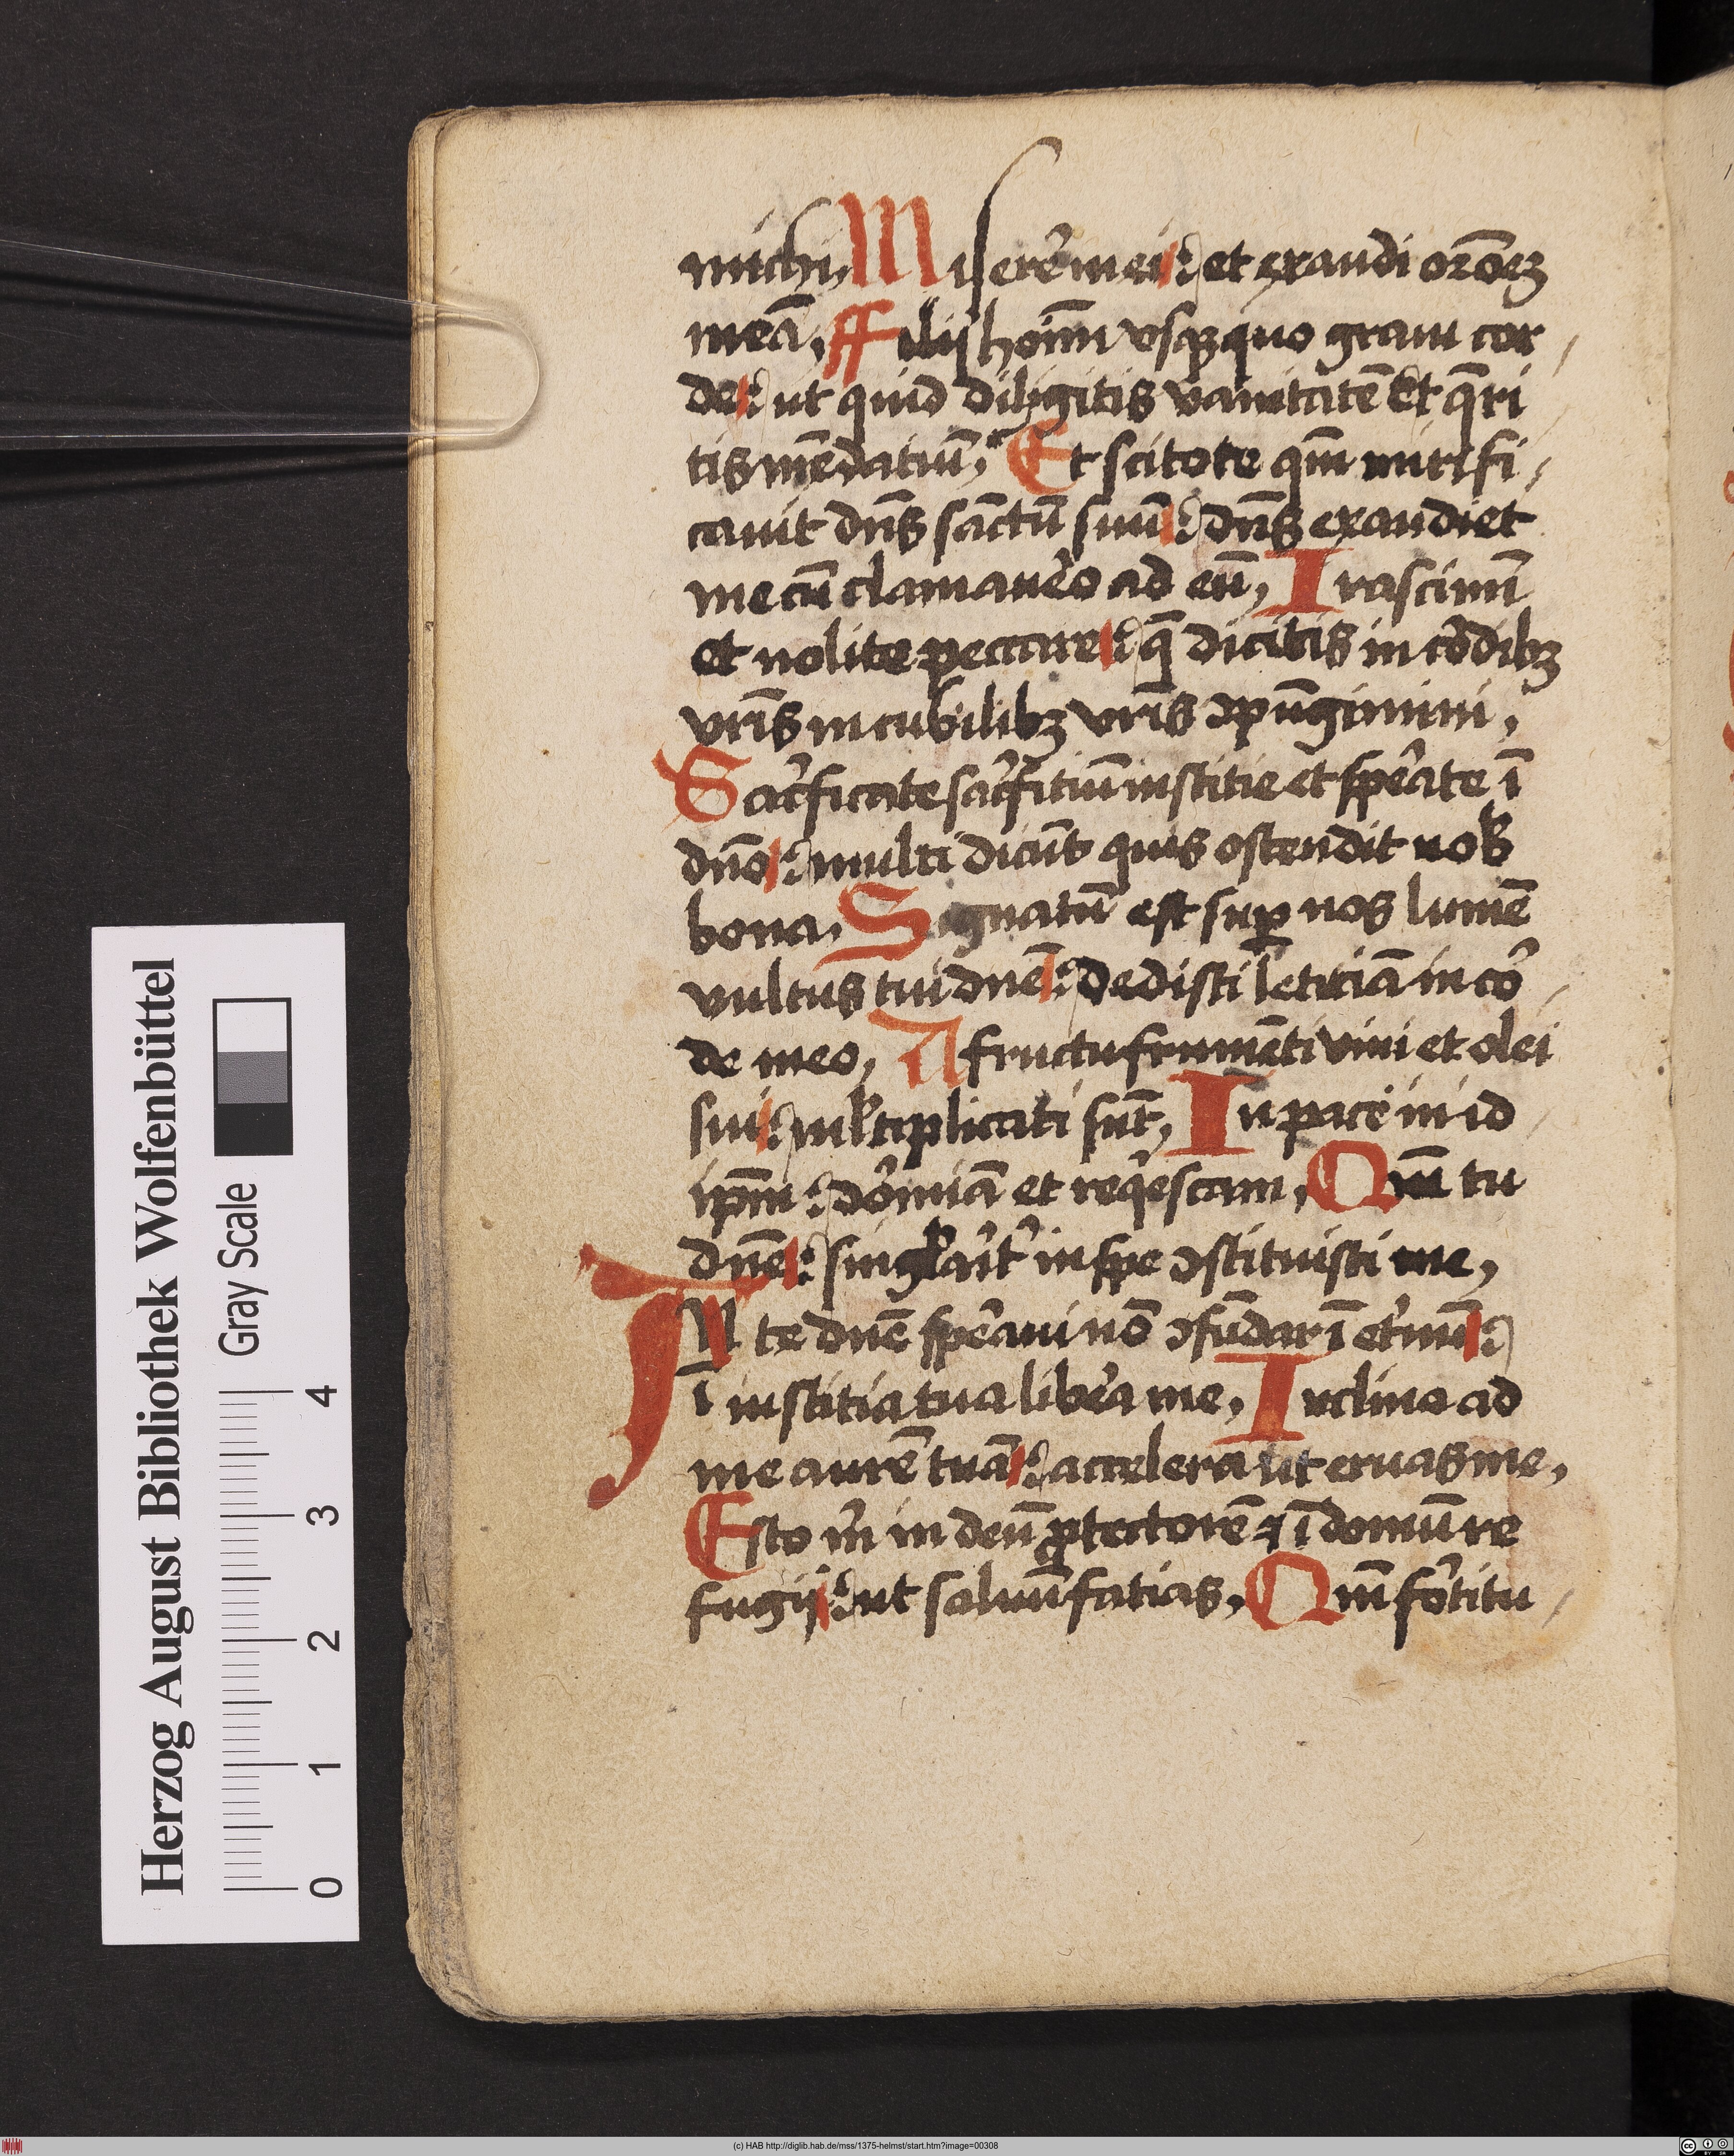 michi, Miserẽ mei : et exaudi orõeʒ
meā, ffilij hoim̄ vsqꝫ quo graui cor /
de : ut quid diligitis vanitatē Et q̄ri
tis mēdatiū, Et scitote qm̄ mirifi /
cauit dn̄s sāctū suū : dn̄s exaudiet
me cū clamauero ad eū, Irascimī
et nolite peccare : q̄ dicitis in cordibꝫ
vr̄is in cubilibꝫ vr̄is ꝯpūgimini,
Sacrificate sacrifitiū iustitie et sperate ī
dn̄o : multi dicūt quis ostendit nob̄
bona, Signatū est suꝑ nos lumē
vultus tui dn̄e : dedisti letitiā in cor /
de meo, A fructu frumēti vini et olei
sui : mltiplicati sūt, In pace in id /
ip̄m : dormiā et reqescam, Qm̄ tu
dn̄e : singlarit̾ in spe ꝯstituisti me,
IN te dn̄e speraui nō ꝯfūdar ī etnū :
ī iustitia tua libera me, Inclina ad
me aurē tuā : accelera ut eruas me,
Esto m̄ in deū ꝓtectorē ⁊ ī domū re
fugij : ut saluū fatias, Qm̄ fortitu /
Herzog August Bibliothek Wolfenbüttel
Gray Scale
0 1 2 3 4
(c) HAB http://diglib.hab.de/mss/1375-helmst/start.htm?image=00308